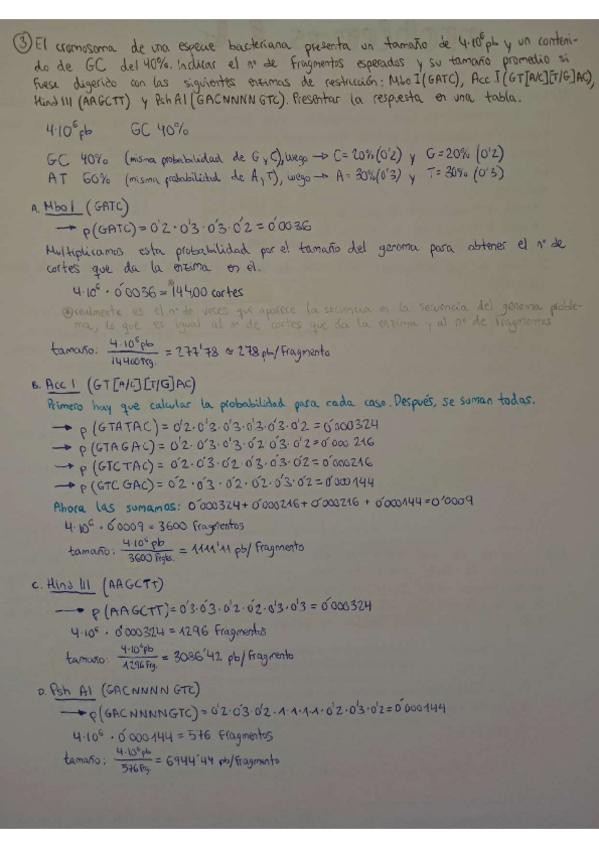 ③ El cromosoma de una especie bacteriana presenta un tamaño de 4·10⁶pb y un conteni-
do de GC del 40%. Indicar el nº de fragmentos esperados y su tamaño promedio si
fuese digerido con las siguientes enzimas de restricción: Mbo I (GATC), Acc I (GT[A/C][T/G]AC),
Hind III (AAGCTT) y Psh AI (GACNNNNGTC). Presentar la respuesta en una tabla.
4·10⁶pb GC 40%
GC 40% (misma probabilidad de G y C), luego → C=20% (0'2) y G=20% (0'2)
AT 60% (misma probabilidad de A, T), luego → A=30% (0'3) y T=30% (0'3)
A. Mbo I (GATC)
→ p(GATC)=0'2·0'3·0'3·0'2=0'0036
Multiplicamos esta probabilidad por el tamaño del genoma para obtener el nº de
cortes que da la enzima en él.
4·10⁶·0'0036=14400 cortes
realmente es el nº de veces que aparece la secuencia en la secuencia del genoma proble-
ma, lo que es igual al nº de cortes que da la enzima y al nº de fragmentos
tamaño: 4·10⁶pb / 14400 Frg. = 277'78 ≈ 278 pb/Fragmento
B. Acc I (GT[A/C][T/G]AC)
Primero hay que calcular la probabilidad para cada caso. Después, se suman todas.
→ p(GTATAC)=0'2·0'3·0'3·0'3·0'3·0'2=0'000324
→ p(GTAGAC)=0'2·0'3·0'3·0'2·0'3·0'2=0'000216
→ p(GTCTAC)=0'2·0'3·0'2·0'3·0'3·0'2=0'000216
→ p(GTCGAC)=0'2·0'3·0'2·0'2·0'3·0'2=0'000144
Ahora las sumamos: 0'000324+0'000216+0'000216+0'000144=0'0009
4·10⁶·0'0009=3600 fragmentos
tamaño: 4·10⁶pb / 3600 Frgts. = 1111'11 pb/Fragmento
C. Hind III (AAGCTT)
→ p(AAGCTT)=0'3·0'3·0'2·0'2·0'3·0'3=0'000324
4·10⁶·0'000324=1296 Fragmentos
tamaño: 4·10⁶pb / 1296 Frg. = 3086'42 pb/Fragmento
D. Psh AI (GACNNNNGTC)
→ p(GACNNNNGTC)=0'2·0'3·0'2·1·1·1·1·0'2·0'3·0'2=0'000144
4·10⁶·0'000144=576 Fragmentos
tamaño: 4·10⁶pb / 576 Frg. = 6944'44 pb/Fragmento